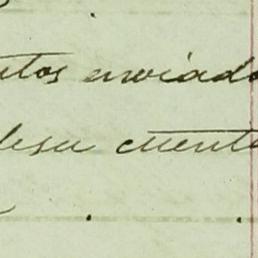 tos enviado
desu cuenta